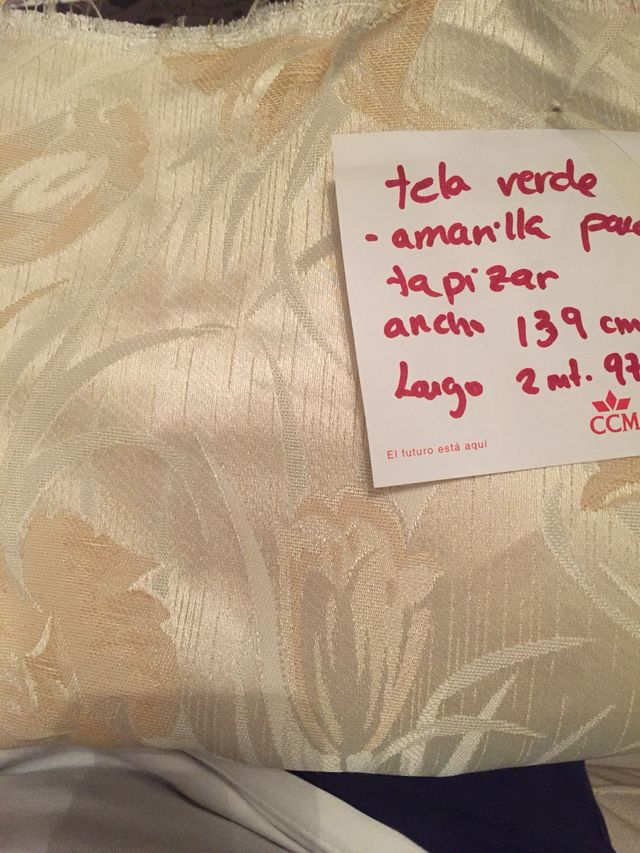 tela verde
- amarilla para
tapizar
ancho 139 cm
Largo 2 mt. 97
CCM
El futuro está aquí